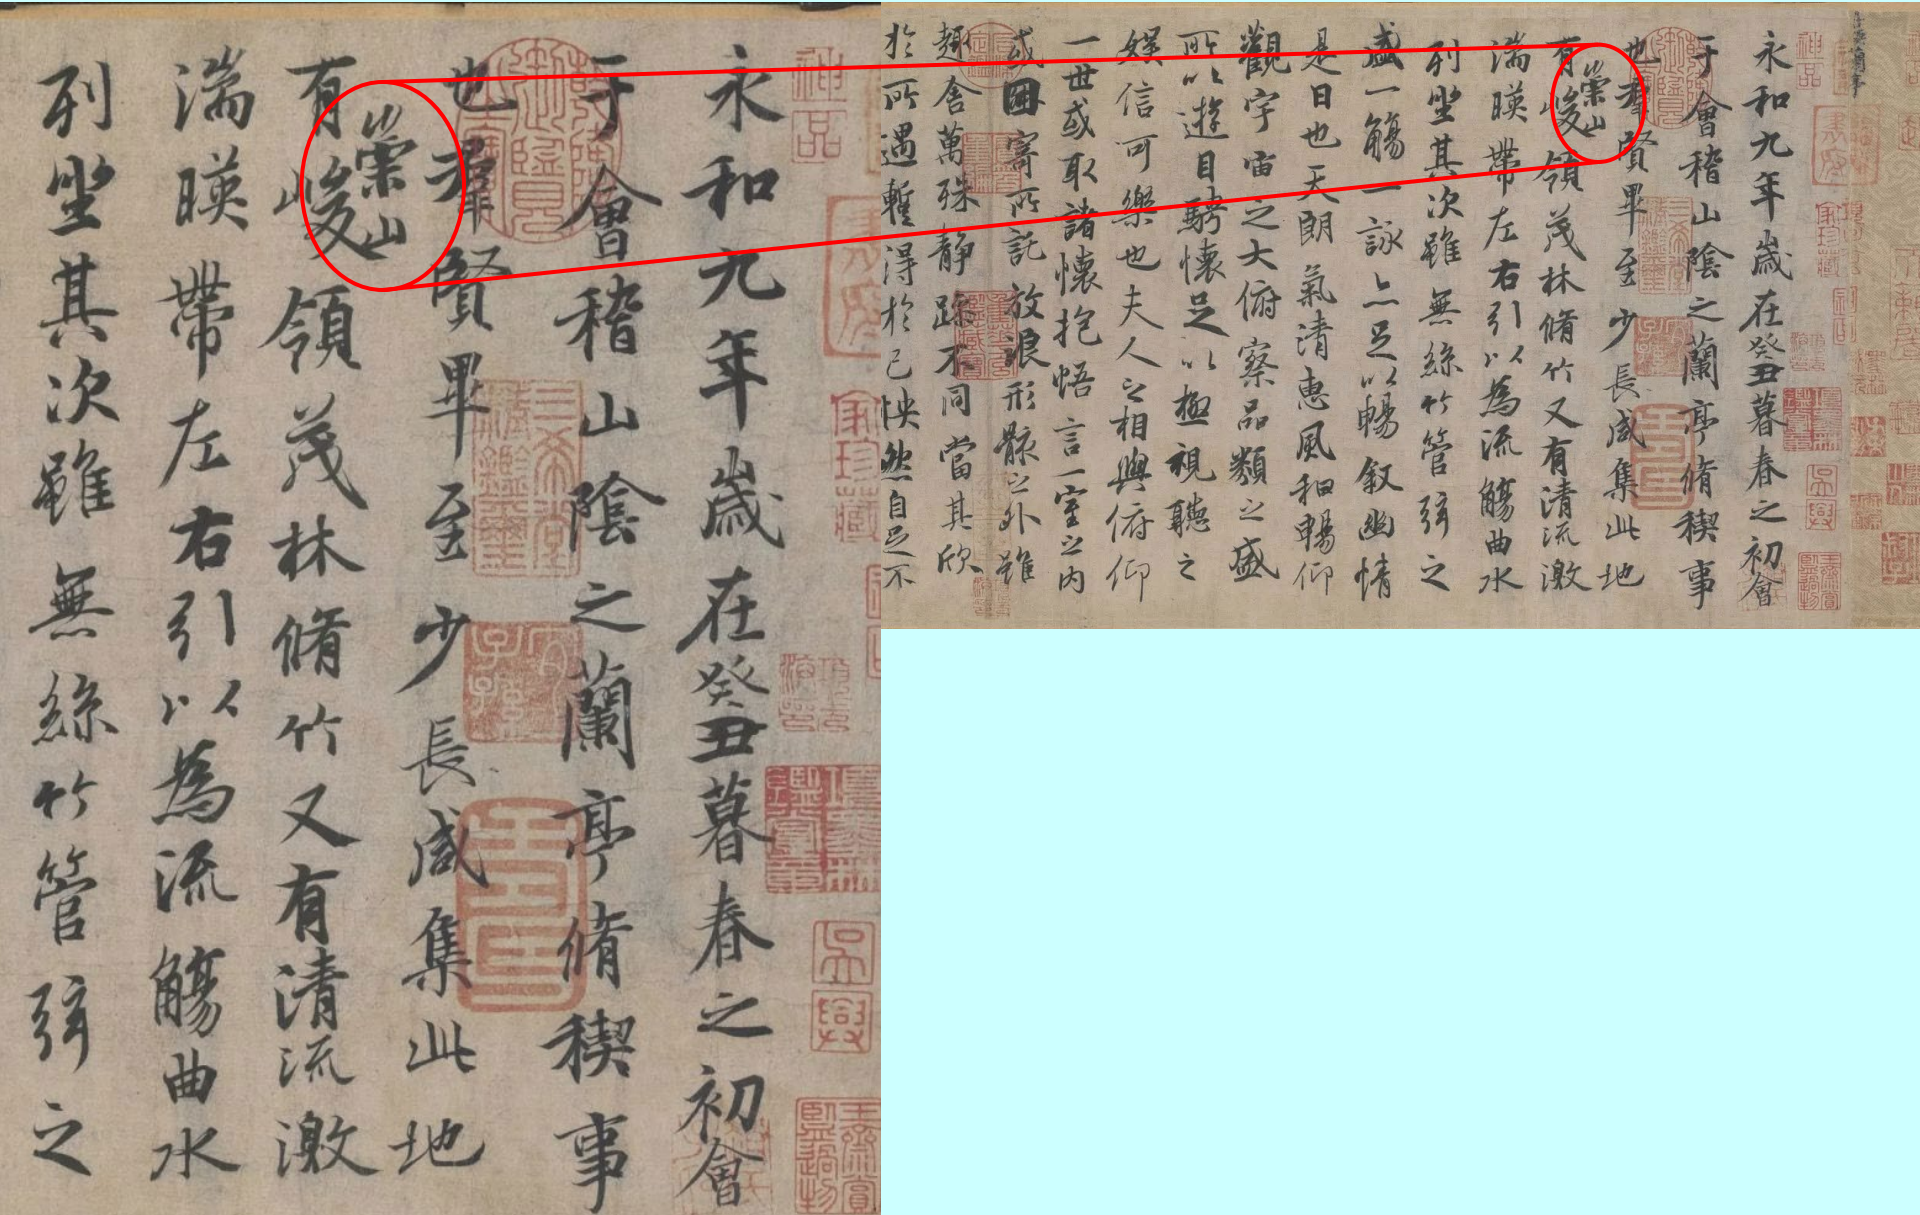 永和九年歲在癸丑暮春之初會
于會稽山陰之蘭亭脩稧事
也羣賢畢至少長咸集此地
有崇山峻領茂林脩竹又有清流激
湍暎帶左右引以為流觴曲水
列坐其次雖無絲竹管弦之
永和九年歲在癸丑暮春之初會
于會稽山陰之蘭亭脩稧事
也羣賢畢至少長咸集此地
有崇山峻領茂林脩竹又有清流激
湍暎帶左右引以為流觴曲水
列坐其次雖無絲竹管弦之
盛一觴一詠亦足以暢叙幽情
是日也天朗氣清惠風和暢仰
觀宇宙之大俯察品類之盛
所以遊目騁懷足以極視聽之
娛信可樂也夫人之相與俯仰
一世或取諸懷抱悟言一室之內
或因寄所託放浪形骸之外雖
趣舍萬殊靜躁不同當其欣
於所遇蹔得於己怏然自足不